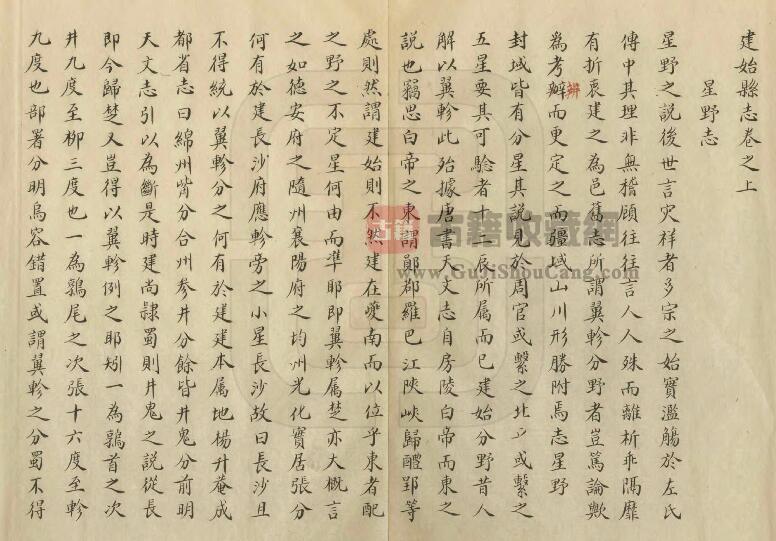 建始縣志卷之上
星野志
星野之說後世言灾祥者多宗之始實濫觴於左氏
傳中其理非無稽顧往往言人人殊而離析乖隔靡
有折衷建之為邑舊志所謂翼軫分野者豈篤論歟
為考辯辨而更定之而疆域山川形勝附焉志星野
封域皆有分星其說見於周官或繫之北斗或繫之
五星要其可驗者十二辰所属而已建始分野昔人
解以翼軫此殆據唐書天文志自房陵白帝而東之
說也竊思白帝之東謂鄖郡羅巴江陝峽歸醴郢等
處則然謂建始則不然建在夔南而以位乎東者配
之野之不定星何由而準耶即翼軫属楚亦大概言
之如德安府之隨州襄陽府之均州光化實居張分
何有於建長沙府應軫旁之小星長沙故曰長沙且
不得統以翼軫分之何有於建建本属地楊升菴成
都省志曰綿州觜分合州參井分餘皆井鬼分前明
天文志引以為斷是時建尚隷蜀則井鬼之說從長
即今歸楚又豈得以翼軫例之耶矧一為鶉首之次
井九度至柳三度也一為鶉尾之次張十六度至軫
九度也部署分明烏容錯置或謂翼軫之分蜀不得
古籍
古籍收藏網
www.GujiShouCang.com